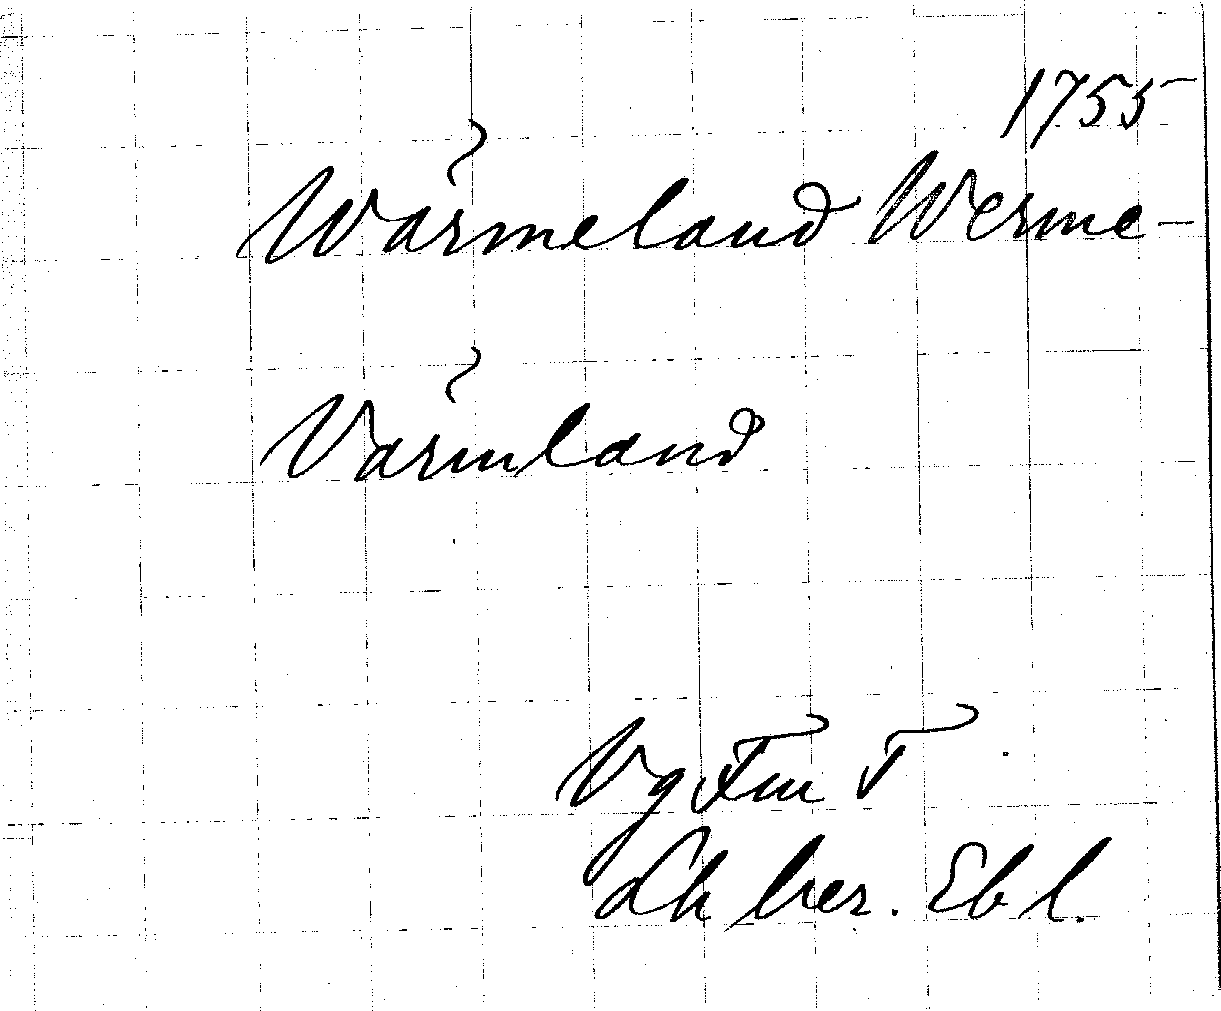 1755
Wärmeland Werme-
Värmland
Vg Fm T
Lh ber. Ebl.